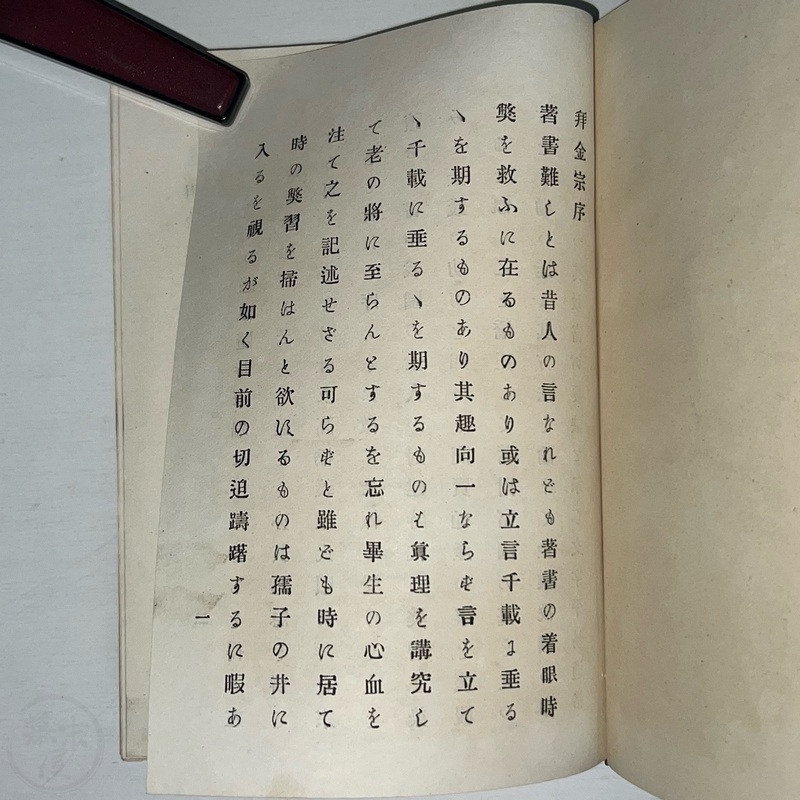 拜金宗序
著書難しとは昔人の言なれども著書の着眼時
獘を救ふに在るものあり或は立言千載に垂る
ヽを期するものあり其趣向一ならず言を立て
ヽ千載に垂るヽを期するものは眞理を講究し
て老の將に至らんとするを忘れ畢生の心血を
注て之を記述せざる可らずと雖ども時に居て
時の獘習を掃はんと欲するものは孺子の井に
入るを視るが如く目前の切迫躊躇するに暇あ
一